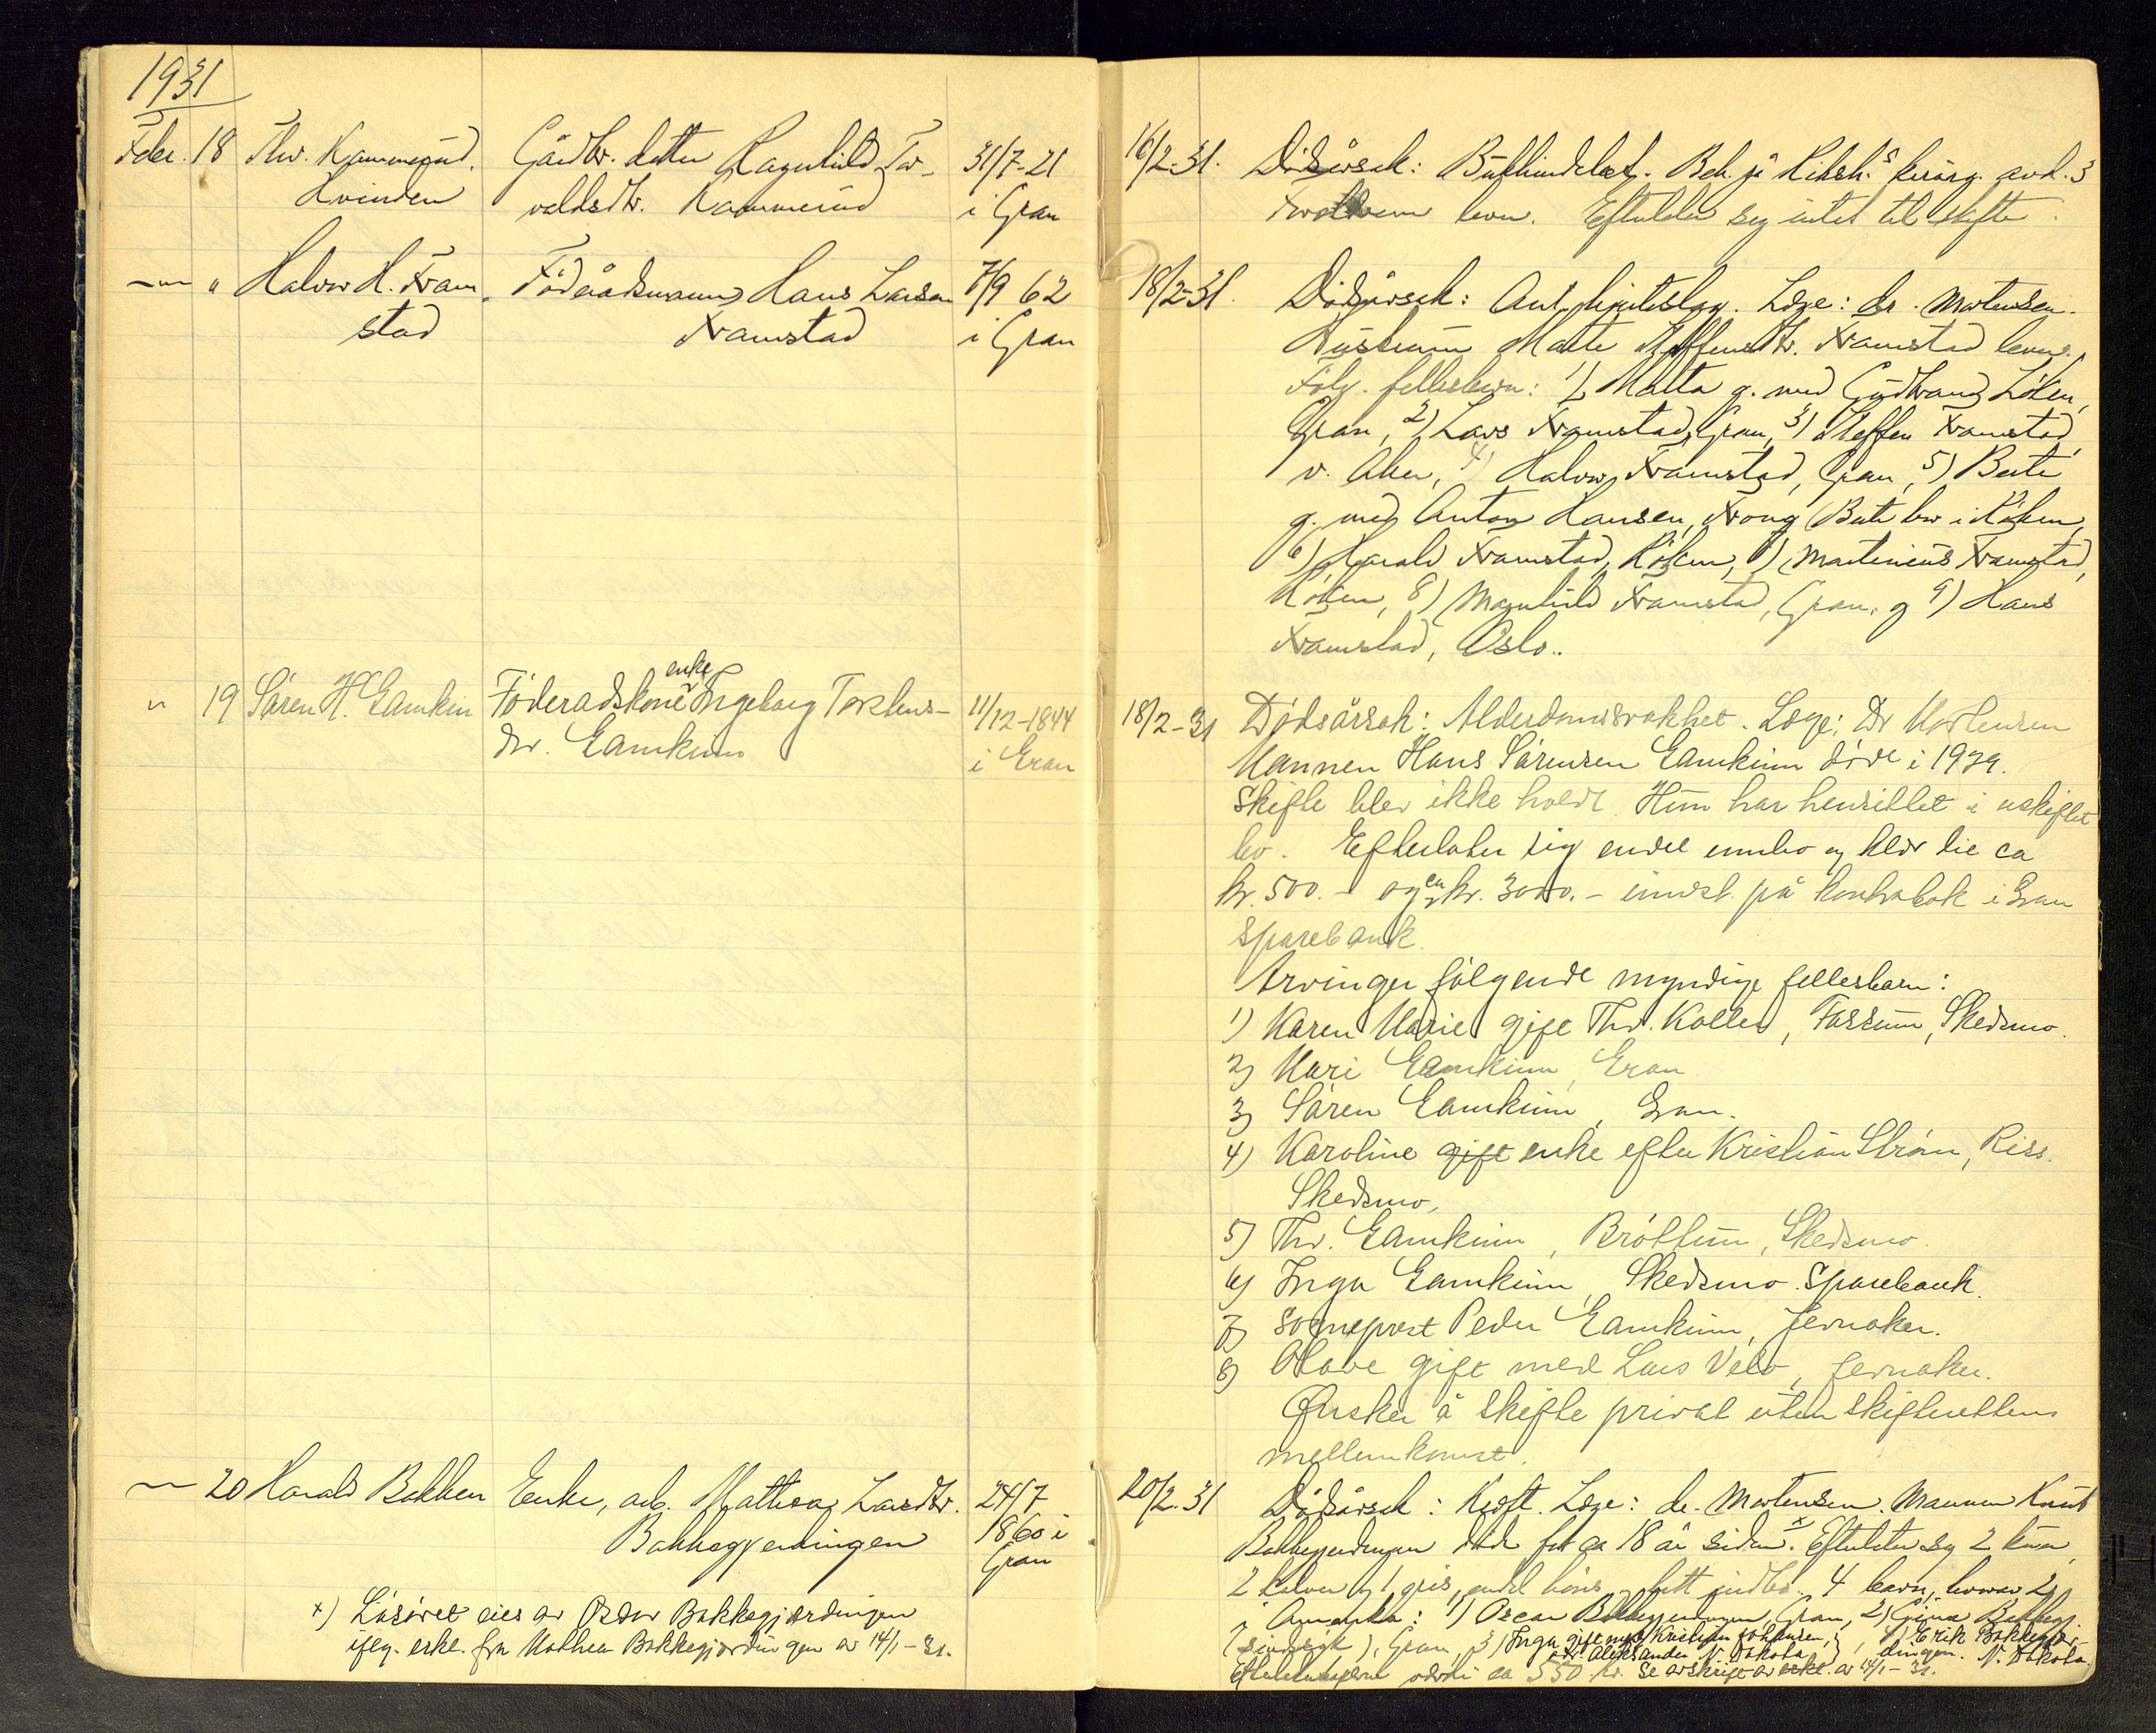 1931
Febr. 18 Thv. Kammerud. Gårdbr. datter Ragnhild Tor- 31/7-21
Hvinden valdsdtr. Kammerud i Gran
16/2-31. Dødsårsak: Bukhindebet. Beh. på Riksh.s kirurg. avd. 3
Foreldrene lever. Efterlater sig intet til skifte.
—"— " Halvor H. Framstad Føderådsmann Hans Larsen 7/9 62
stad Framstad i Gran
18/2-31. Dødsårsak: Ant. hjerteslag. Læge: dr. Mortensen.
Hustruen Marte Steffensdtr. Framstad lever.
Følg. fellesbarn: 1) Marta g. med Gudbrand Løken,
Gran, 2) Lars Framstad, Gran, 3) Steffen Framstad,
v. Aker, 4) Halvor Framstad, Gran, 5) Berte
g. med Anton Hansen, Berte bor i Røken,
6) Harald Framstad, Røken, 7) Martinius Framstad,
Røken, 8) Magnhild Framstad, Gran, og 9) Hans
Framstad, Oslo.
" 19 Søren H. Gamkin Føderadskone enke Ingeborg Torstens- 11/12-1844
dtr. Gamkinn i Gran
18/2-31 Dødsårsak: Alderdomssvakhet. Læge: Dr Mortensen
Mannen Hans Sørensen Gamkinn døde i 1929.
Skifte blev ikke holdt. Hun har hensittet i uskiftet
bo. Efterlater sig endel innbo og klær til ca
kr. 500.- og ca kr. 3000.- innest. på kontrabok i Gran
Sparebank.
Arvinger følgende myndige fellesbarn:
1) Karen Marie gift Thv. Koller, Fossum, Skedsmo.
2) Mari Gamkinn, Gran
3) Søren Gamkinn, Gran.
4) Karoline gift enke efter Kristian Strøm, Riss.
Skedsmo,
5) Thv. Gamkinn, Brøttum, Skedsmo
6) Inga Gamkinn, Skedsmo Sparebank.
7) Sogneprest Peder Gamkinn, Jevnaker.
8) Olave gift med Lars Velo, Jevnaker.
Ønsker å skifte privat uten skifterettens
mellemkomst.
—"— 20 Harald Bakken Enke, arb. Mathea Larsdtr. 24/7
Bakkegjerdingen 1860 i
Gran
x) Løsøret eies av Oskar Bakkegjerdingen
iflg. erkl. fra Mathea Bakkegjerdingen av 14/1-31.
20/2.31 Dødsårsak: Kreft. Læge: dr. Mortensen. Mannen Knut
Bakkegjerdingen døde for ca 18 år siden. x Efterlater sig 2 kuer,
2 kalver og 1 gris, endel høns og litt indbo. 4 barn, hvorav 2
i Amerika: 1) Oscar Bakkegjerdingen, Gran, 2) Bakkegj.
(sinnssyk), Gran, 3) Inga gift med Kristian Johansen, 4) Erik Bakkegjer-
adr. Aleksander N. Dakota dingen. N. Dakota.
ca 550 kr. Se avskrift av erkl. av 14/1-31.